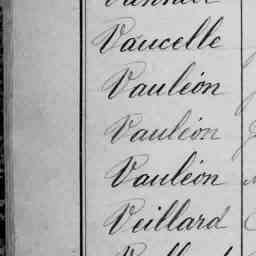 Vaucelle
Vauléon
Vauléon
Vauléon
Veillard